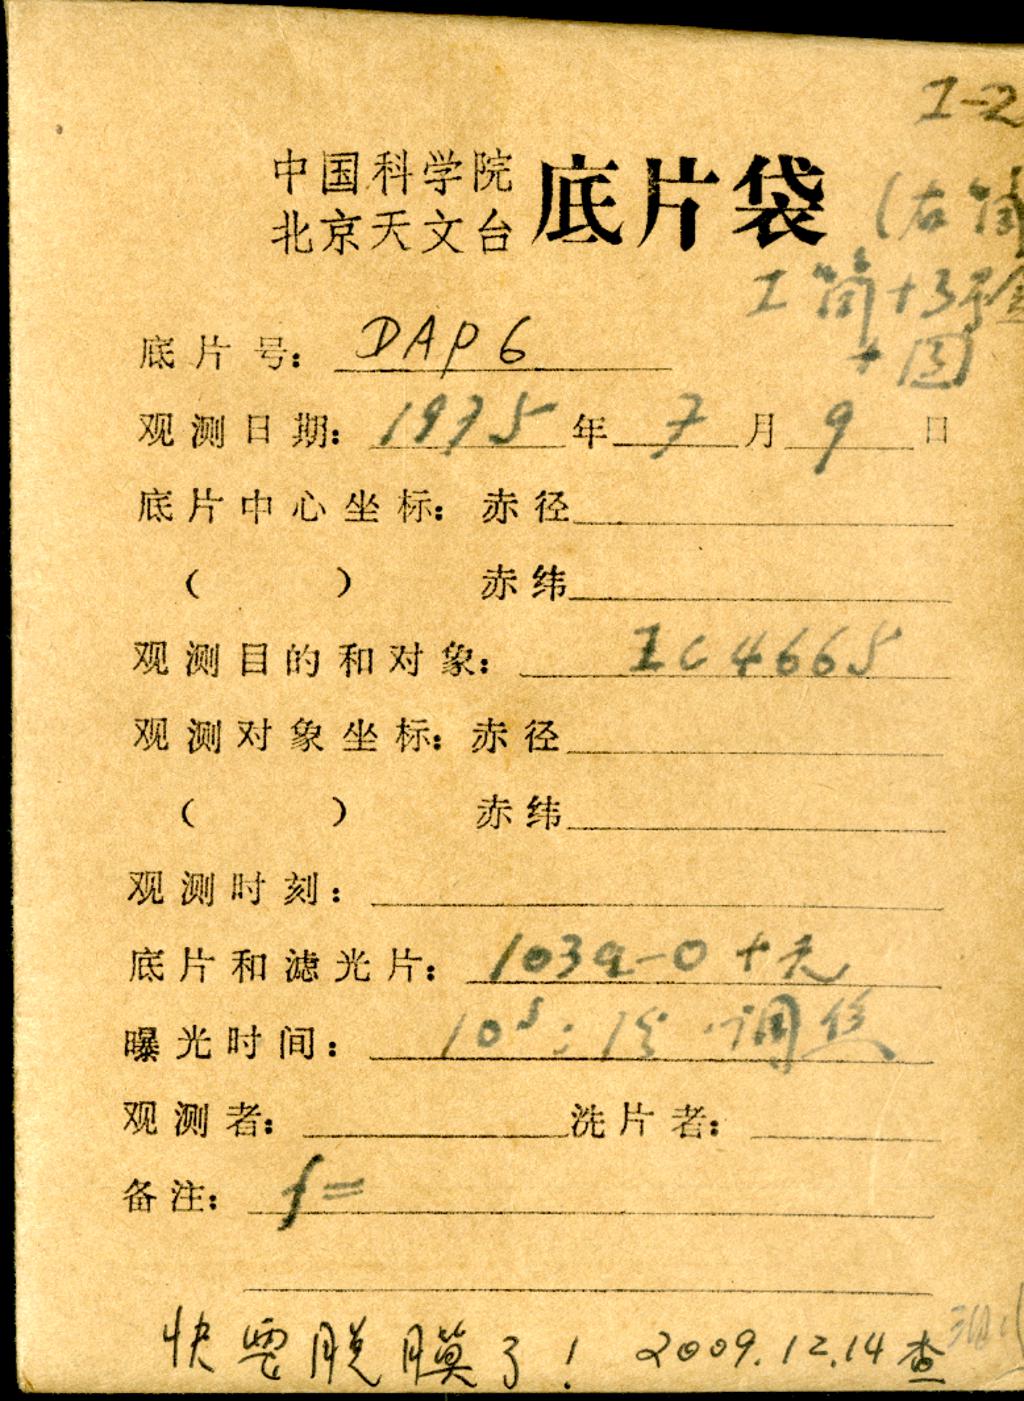 I-2
中国科学院
北京天文台
底片袋
(右筒
I筒+3号盒
+图
底片号: DAP6
观测日期: 1975年7月9日
底片中心坐标: 赤径
( ) 赤纬
观测目的和对象: IC4665
观测对象坐标: 赤径
( ) 赤纬
观测时刻:
底片和滤光片: 103a-O+无
曝光时间: 10s; 调丝
观测者: 洗片者:
备注: f=
快要脱膜了! 2009.12.14查